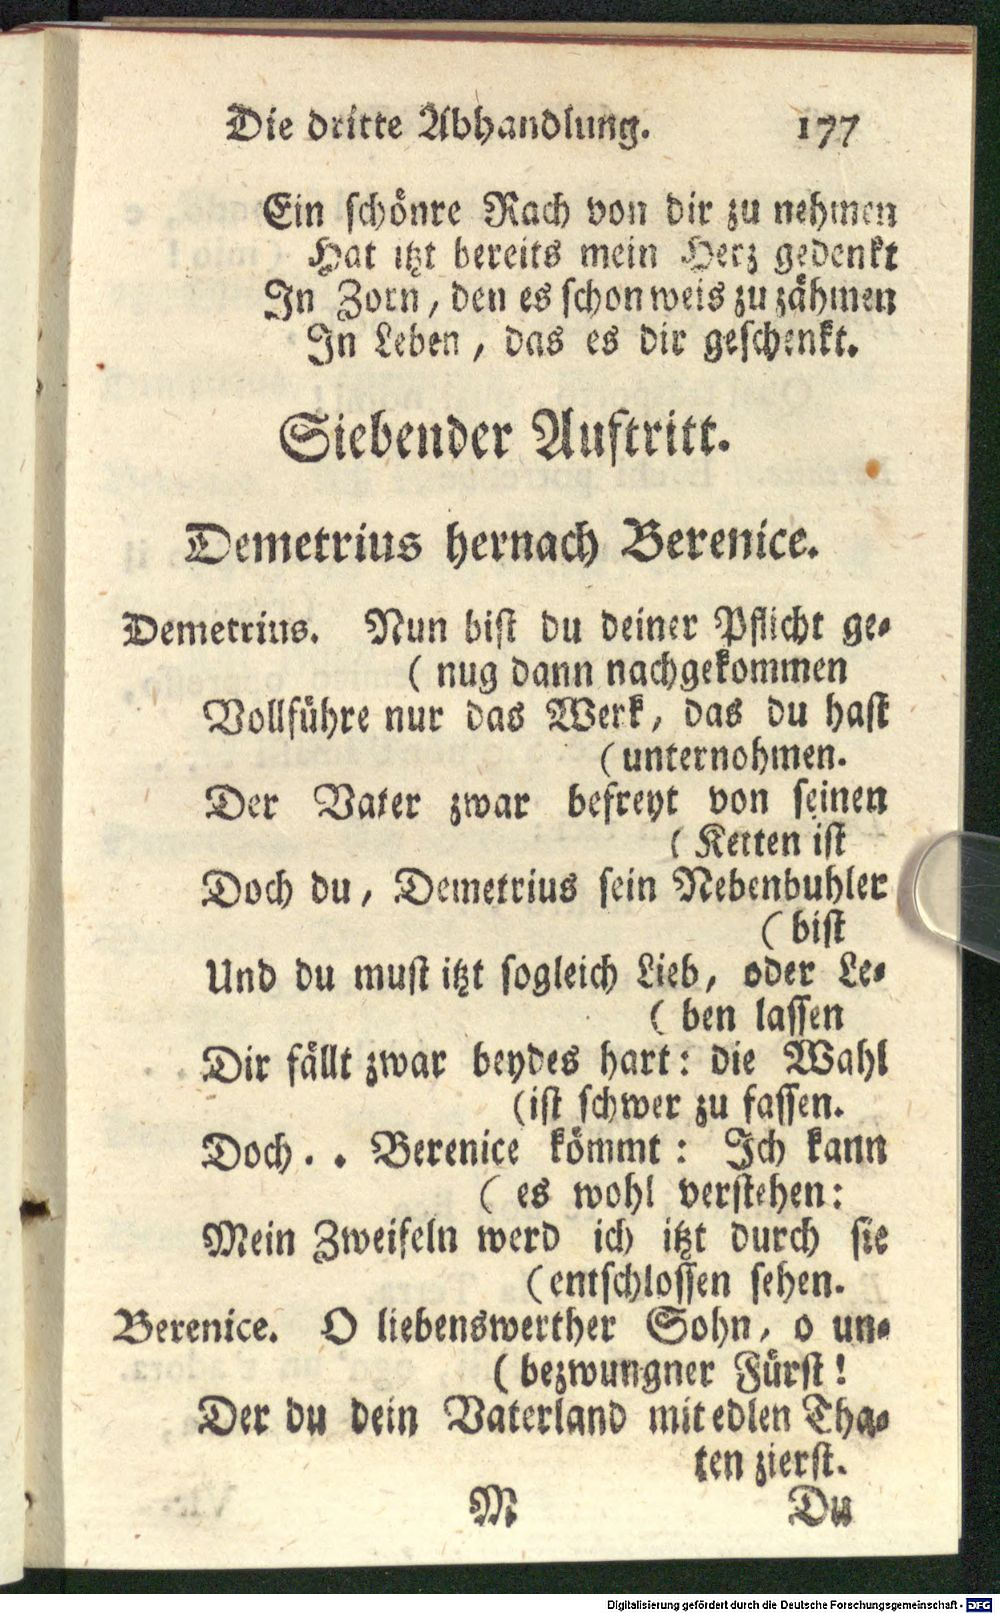 Die dritte Abhandlung. 177
Ein schönre Rach von dir zu nehmen
Hat itzt bereits mein Herz gedenkt
In Zorn, den es schon weis zu zähmen
In Leben, das es dir geschenkt.
Siebender Auftritt.
Demetrius hernach Berenice.
Demetrius. Nun bist du deiner Pflicht ge-
( nug dann nachgekommen
Vollführe nur das Werk, das du hast
( unternohmen.
Der Vater zwar befreyt von seinen
( Ketten ist
Doch du, Demetrius sein Nebenbuhler
( bist
Und du must itzt sogleich Lieb, oder Le-
( ben lassen
Dir fällt zwar beydes hart: die Wahl
(ist schwer zu fassen.
Doch. . Berenice kömmt: Ich kann
( es wohl verstehen:
Mein Zweifeln werd ich itzt durch sie
(entschlossen sehen.
Berenice. O liebenswerther Sohn, o un-
( bezwungner Fürst!
Der du dein Vaterland mit edlen Tha-
ten zierst.
M Du
Digitalisierung gefördert durch die Deutsche Forschungsgemeinschaft - DFG